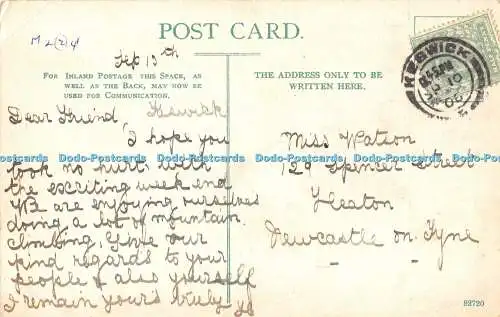 POST CARD.
M 2(2)4
Sep 13th
FOR INLAND POSTAGE THIS SPACE, AS
WELL AS THE BACK, MAY NOW BE
USED FOR COMMUNICATION.
THE ADDRESS ONLY TO BE
WRITTEN HERE.
KESWICK
Keswick
Dear Friend
I hope you
took no hurt with
the exciting week end
WE are enjoying ourselves
doing a lot of mountain
climbing. Give our
kind regards to your
people & also yourself
I remain yours truly
Miss Watson
129 Spencer Street
Heaton
Newcastle on Tyne
Dodo-Postcards Dodo-Postcards Dodo-Postcards Dodo-Postcards
82720